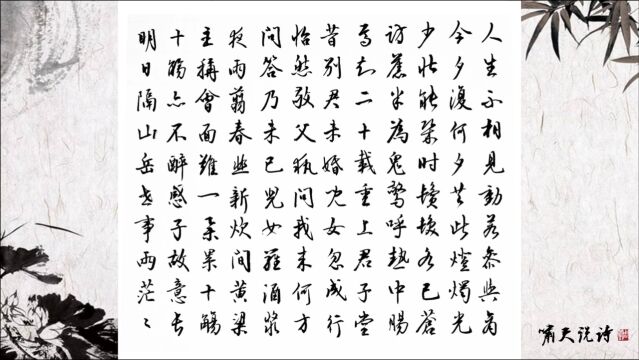 人生不相見動若參與商
今夕復何夕共此燈燭光
少壯能幾時鬢髮各已蒼
訪舊半為鬼驚呼熱中腸
焉知二十載重上君子堂
昔別君未婚兒女忽成行
怡然敬父執問我來何方
問答乃未已兒女羅酒漿
夜雨翦春韭新炊間黃粱
主稱會面難一舉累十觴
十觴亦不醉感子故意長
明日隔山岳世事兩茫〻
嘯天说诗